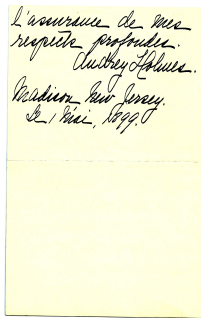 l'assurance de mes
respects profondes.
Audrey Holmes.
Madison New Jersey.
Le 1 Mai, 1899.